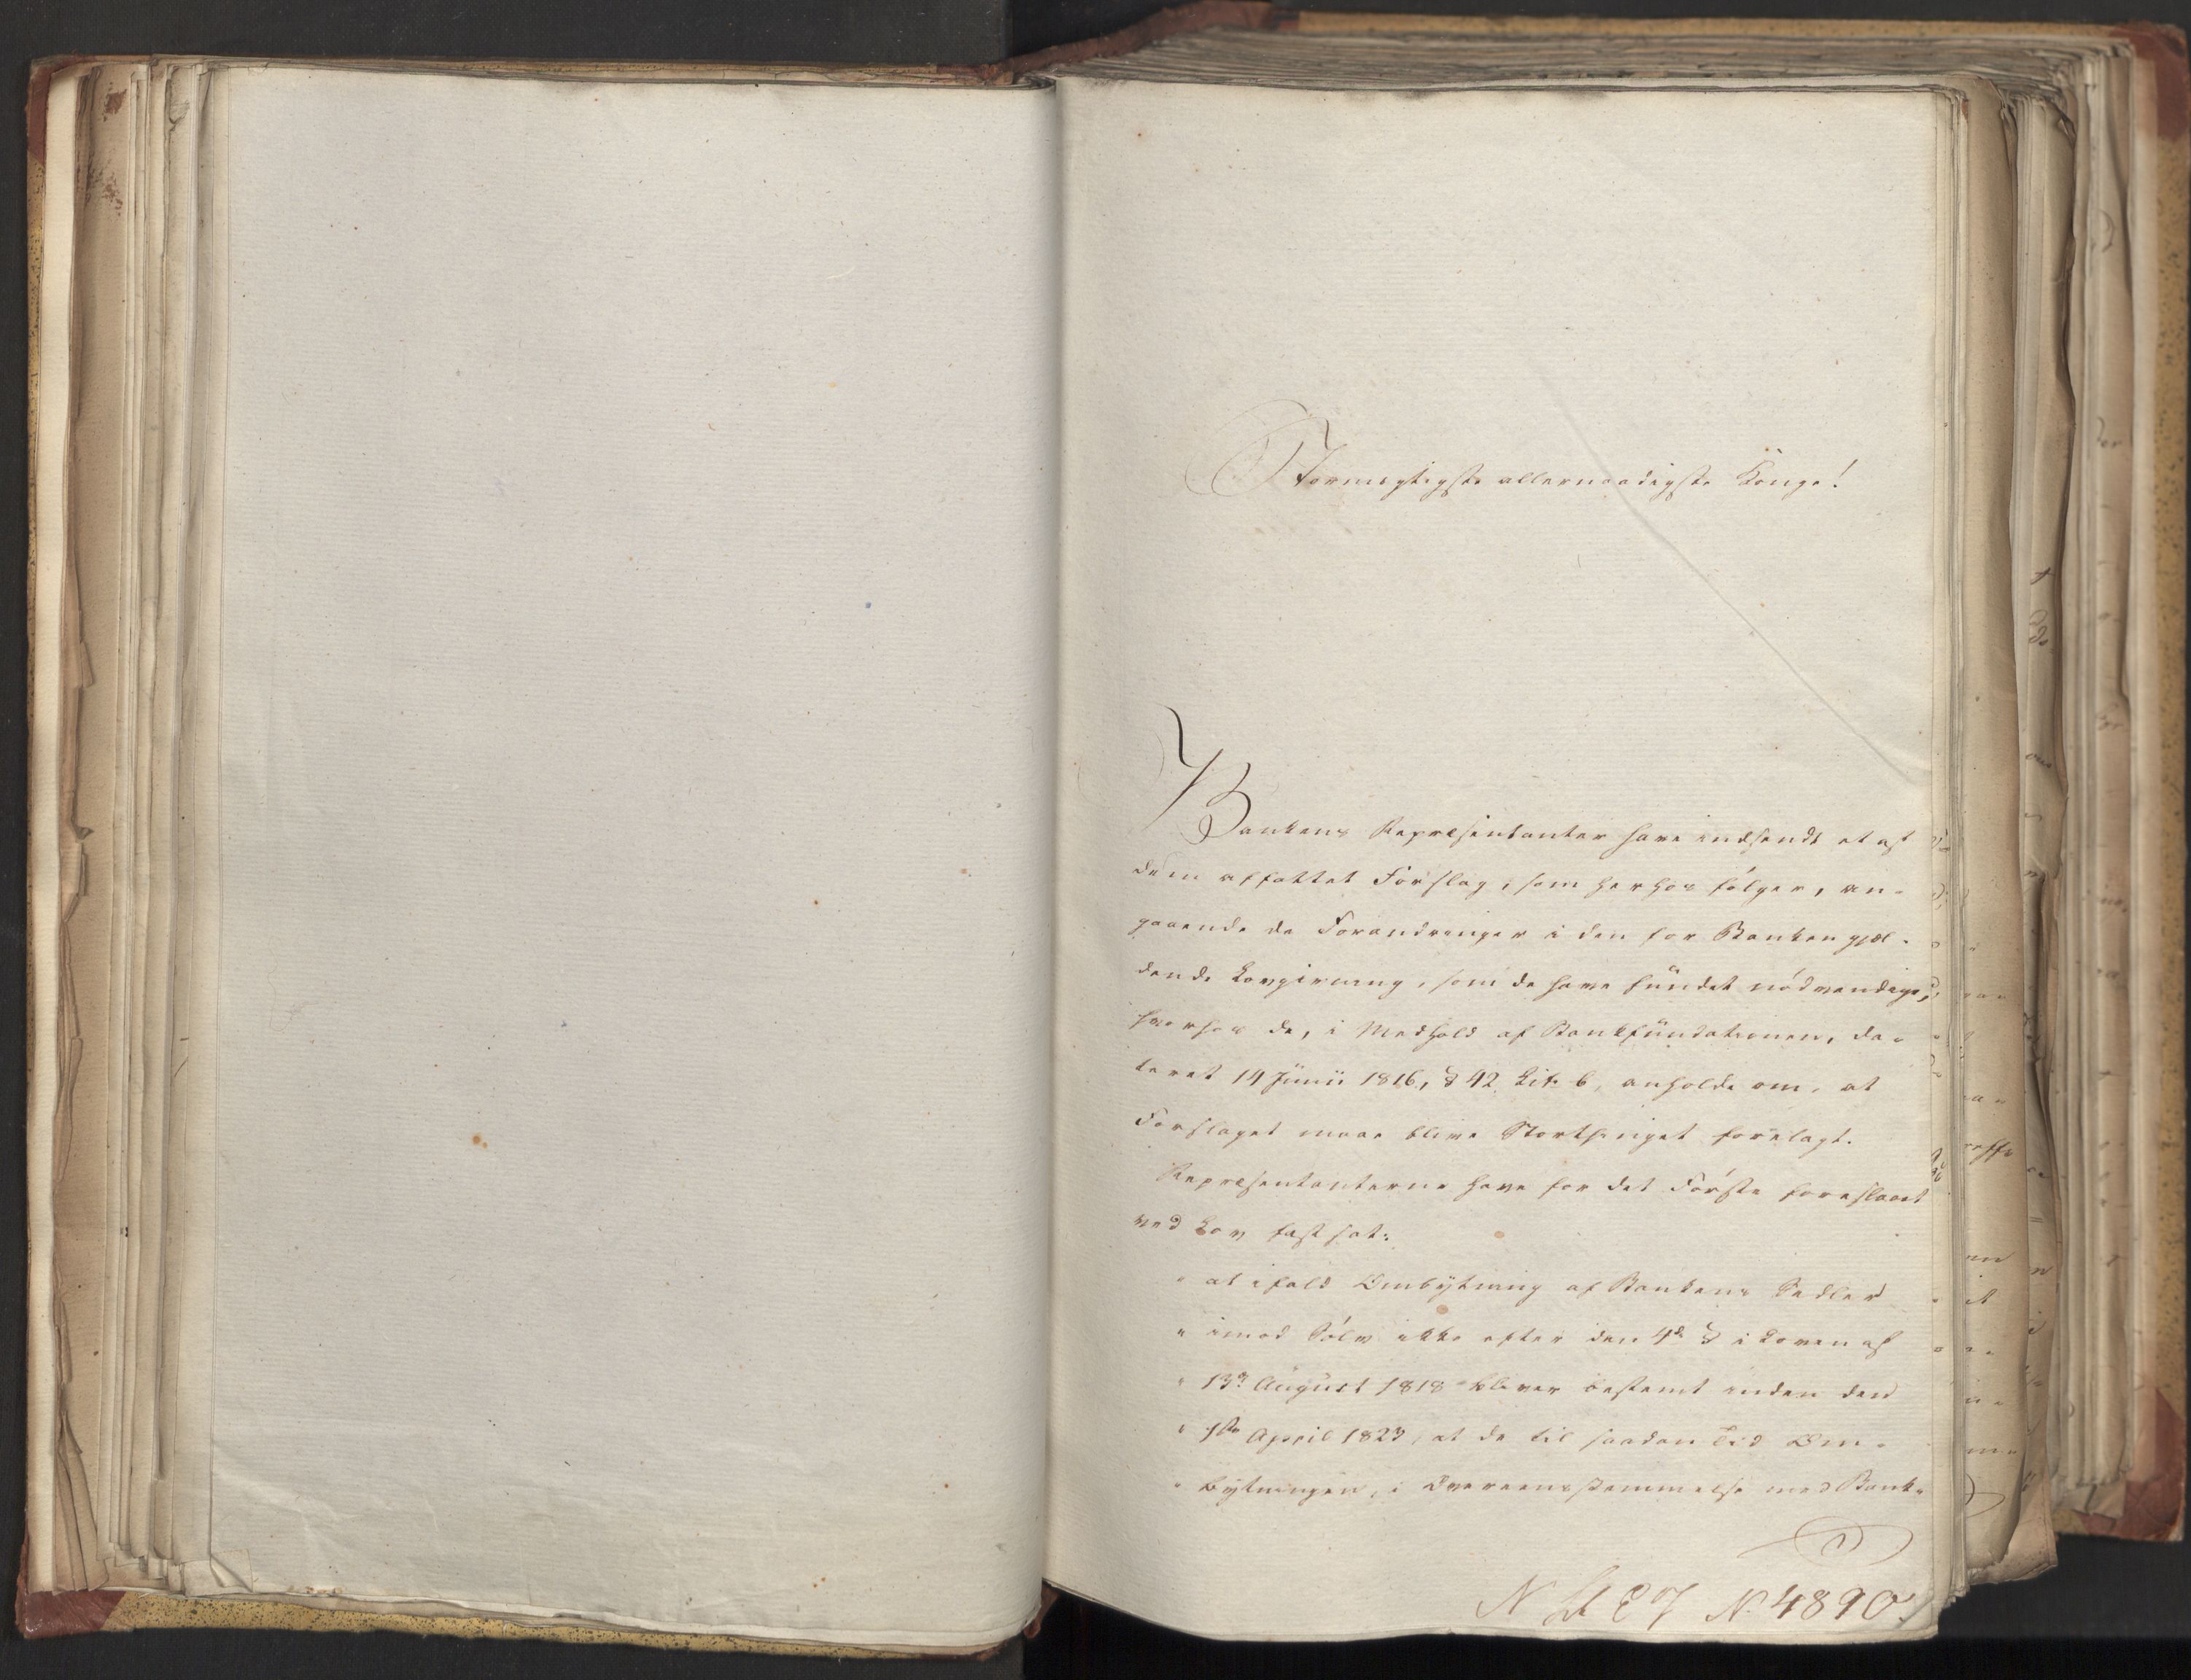 Stormegtigste allernaadigste Konge!
Bankens Repræsentanter have indsendt et af
dem affattet Forslag, som herhos følger, an-
gaaende de Forandringer i den for Banken gjæl-
dende Lovgivning, som de have fundet nødvendige,
hvorhos de, i Medhold af Bankfundationen, da-
teret 14 Junii 1816, § 42 Lit. b, anholde om, at
Forslaget maae blive Storthinget forelagt.
Repræsentanterne have for det Første foreslaaet
ved Lov fastsat:
" at ifald Ombytning af Bankens Sedler
" imod Sølv ikke efter den 4de § i Loven af
" 13de August 1818 bliver bestemt inden den
" 1ste April 1823, at da til saadan Tid Om-
" bytningen, i Overeensstemmelse med Bank-
N 4890